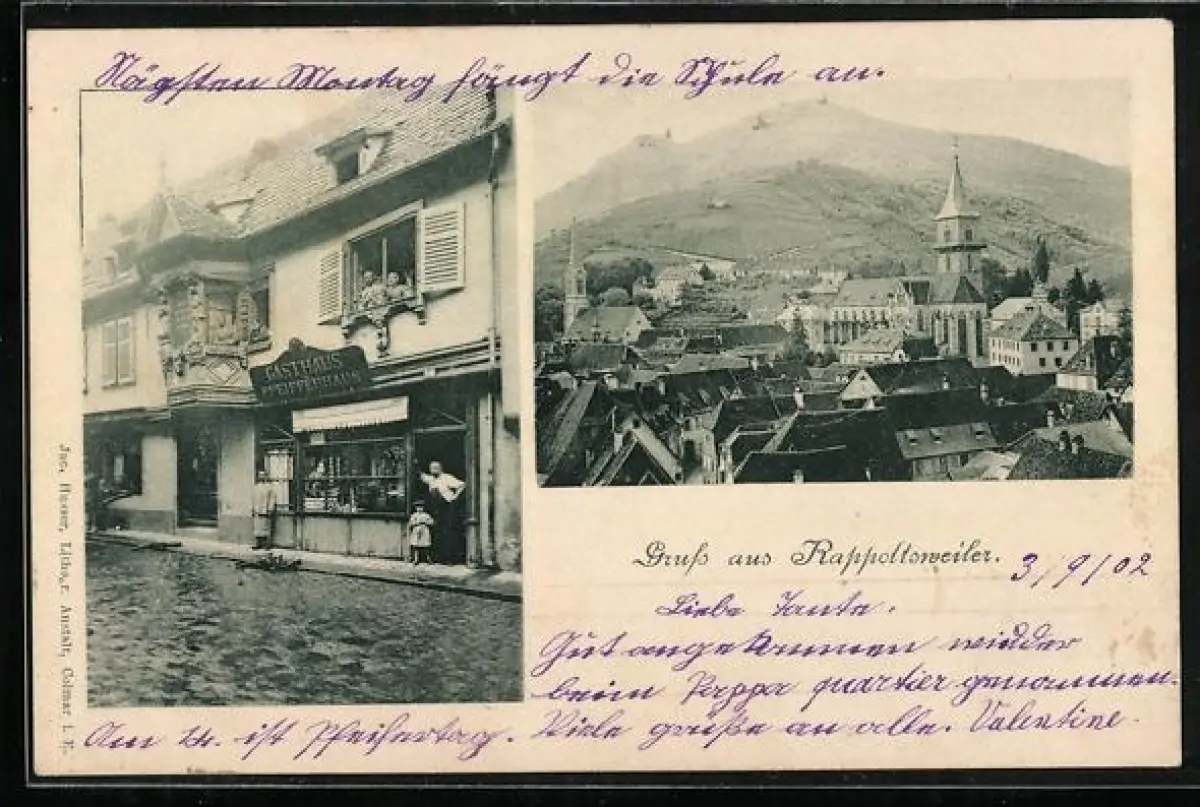 Nägsten Montag fängt die Schule an.
GASTHAUS
PFEIFFERHAUS
Gruß aus Rappoltsweiler.
3/9/02
Liebe Tante.
Gut angekommen wieder
beim Pappa quartier genommen.
Viele grüße an alle. Valentine.
Am 4. ist Pfeifertag.
Jac. Husser, Lith. u. Anstalt, Colmar i. E.